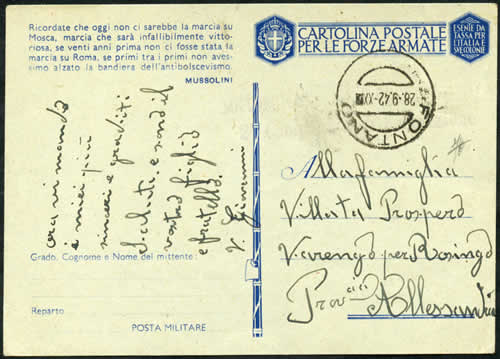 Ricordate che oggi non ci sarebbe la marcia su
Mosca, marcia che sarà infallibilmente vitto-
riosa, se venti anni prima non ci fosse stata la
marcia su Roma, se primi tra i primi non aves-
simo alzato la bandiera dell'antibolscevismo.
MUSSOLINI
CARTOLINA POSTALE
PER LE FORZE ARMATE
ESENTE DA
TASSA PER
L'ITALIA E
SVE COLONIE
28.-9.42-XX
FONTANO
ora vi mando
i miei più
sinceri e graditi
saluti e
vostro figlio
e fratello
Grado, Cognome e Nome del mittente:
Reparto
POSTA MILITARE
Alla famiglia
Villata Prospero
Varengo per Rosingo
Prov cia Allessandria